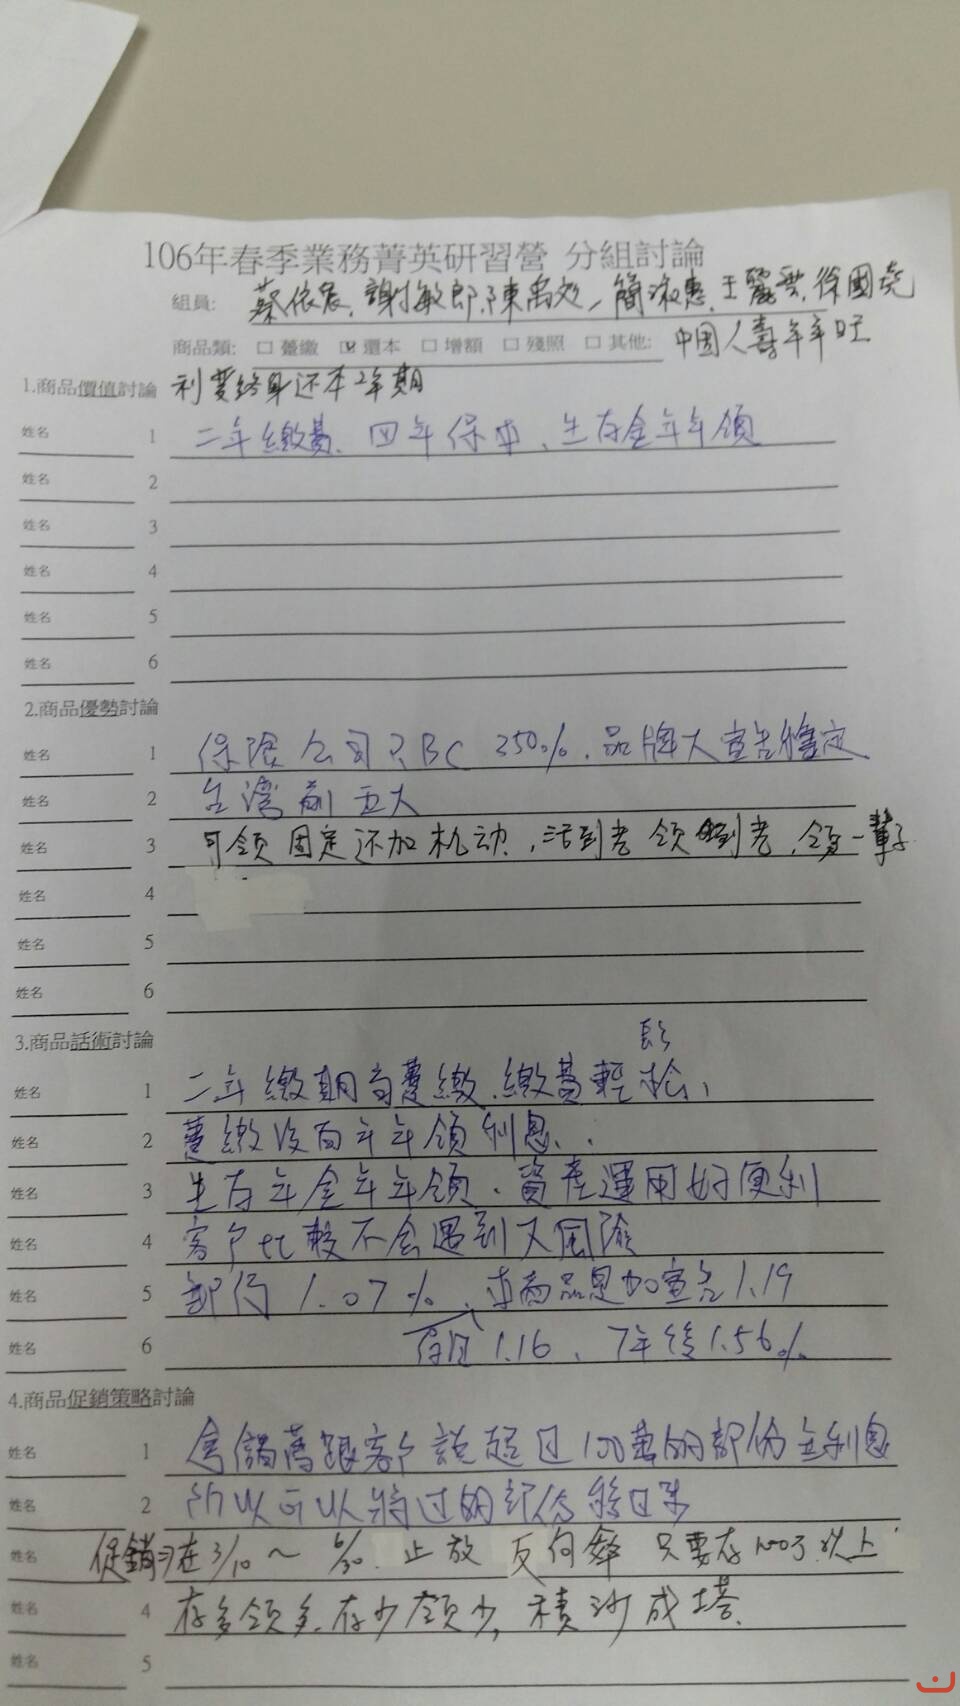 106年春季業務菁英研習營 分組討論
組員: 蔡依宸、謝敏郎、陳禹、簡淑惠、王麗雲、徐國堯
商品類: □ 躉繳 ☑ 還本 □ 增額 □ 殘照 □ 其他: 中國人壽年年旺
1.商品價值討論 利變終身还本2年期
姓名 1 二年繳費、四年保本、生存金年年領
姓名 2
姓名 3
姓名 4
姓名 5
姓名 6
2.商品優勢討論
姓名 1 保險公司RBC 350%、品牌大宣告穩定
姓名 2 台灣前五大
姓名 3 可領固定还加机动,活到老領到老,領一輩子
姓名 4
姓名 5
姓名 6
3.商品話術討論
姓名 1 二年繳期有躉繳、繳費輕松、
姓名 2 躉繳没有年年領利息、
姓名 3 生存年金年年領、資產運用好便利
姓名 4 客戶比較不会遇到風險
姓名 5 郵行 1.07%、本商品息加宣告1.19
姓名 6 保証1.16、7年後1.56%
4.商品促銷策略討論
姓名 1 跟客戶說超过100萬的部份無利息
姓名 2 所以可以將过
姓名 促銷在3/10～6/30 只要存100万以上
姓名 4 存多領多,存少領少,積沙成塔.
姓名 5